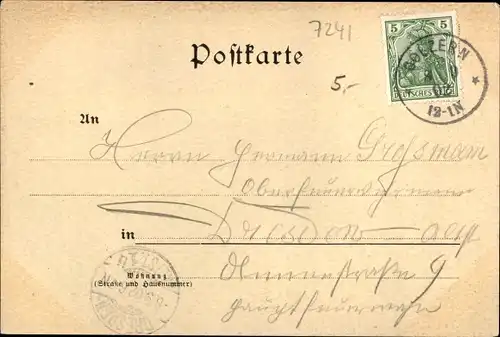 7241
5 5
DEUTSCHES REICH
GOLZERN
12-1N
Postkarte
5,-
An
Herrn Hermann Großmann
Oberfeuerwehrmann
in Dresden-Alt
Wohnung
(Straße und Hausnummer)
Annenstraße 9
Hauptfeuerwache